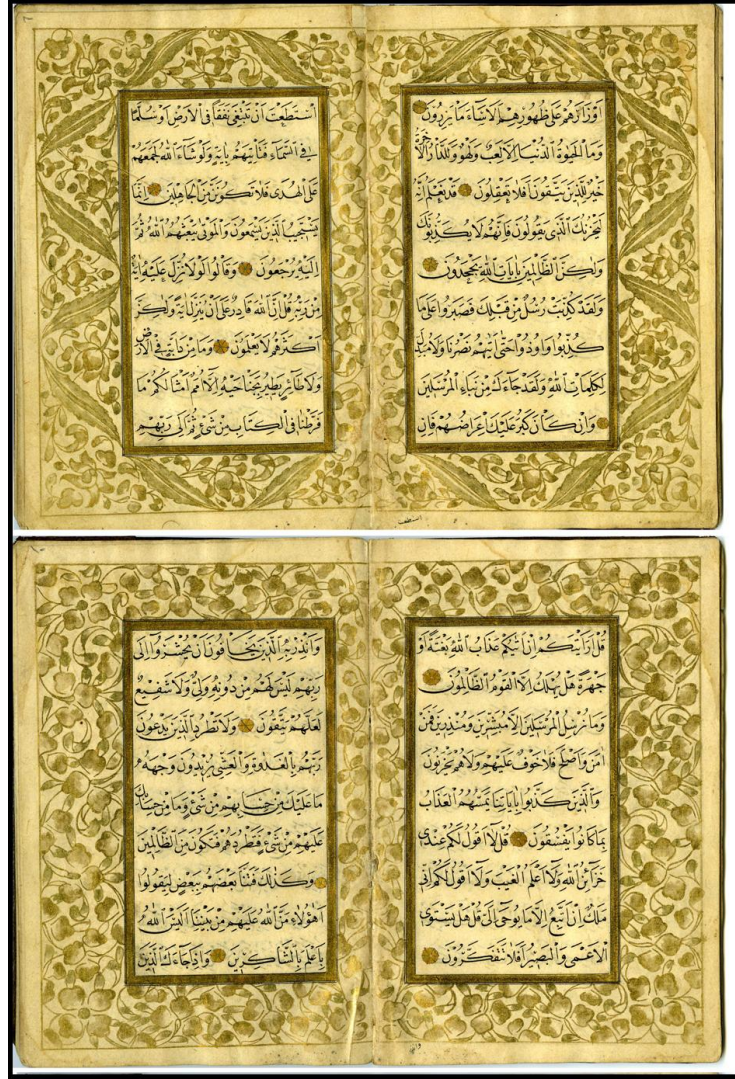 اَوْزَارَهُمْ عَلٰى ظُهُورِهِمْ اَلَا سَاءَ مَا يَزِرُونَ
وَمَا الْحَيٰوةُ الدُّنْيَا اِلَّا لَعِبٌ وَلَهْوٌ وَلَلدَّارُ الْاٰخِرَةُ
خَيْرٌ لِلَّذِينَ يَتَّقُونَ اَفَلَا تَعْقِلُونَ قَدْ نَعْلَمُ اِنَّهُ
لَيَحْزُنُكَ الَّذِى يَقُولُونَ فَاِنَّهُمْ لَا يُكَذِّبُونَكَ
وَلٰكِنَّ الظَّالِمِينَ بِاٰيَاتِ اللّٰهِ يَجْحَدُونَ
وَلَقَدْ كُذِّبَتْ رُسُلٌ مِنْ قَبْلِكَ فَصَبَرُوا عَلٰى مَا
كُذِّبُوا وَاُوذُوا حَتّٰى اَتٰيهُمْ نَصْرُنَا وَلَا مُبَدِّلَ
لِكَلِمَاتِ اللّٰهِ وَلَقَدْ جَاءَكَ مِنْ نَبَاءِ الْمُرْسَلِينَ
وَاِنْ كَانَ كَبُرَ عَلَيْكَ اِعْرَاضُهُمْ فَاِنِ
استطعت
اسْتَطَعْتَ اَنْ تَبْتَغِىَ نَفَقًا فِى الْاَرْضِ اَوْ سُلَّمًا
فِى السَّمَاءِ فَتَاْتِيَهُمْ بِاٰيَةٍ وَلَوْ شَاءَ اللّٰهُ لَجَمَعَهُمْ
عَلَى الْهُدٰى فَلَا تَكُونَنَّ مِنَ الْجَاهِلِينَ اِنَّمَا
يَسْتَجِيبُ الَّذِينَ يَسْمَعُونَ وَالْمَوْتٰى يَبْعَثُهُمُ اللّٰهُ ثُمَّ
اِلَيْهِ يُرْجَعُونَ وَقَالُوا لَوْلَا نُزِّلَ عَلَيْهِ اٰيَةٌ
مِنْ رَبِّهِ قُلْ اِنَّ اللّٰهَ قَادِرٌ عَلٰى اَنْ يُنَزِّلَ اٰيَةً وَلٰكِنَّ
اَكْثَرَهُمْ لَا يَعْلَمُونَ وَمَا مِنْ دَابَّةٍ فِى الْاَرْضِ
وَلَا طَائِرٍ يَطِيرُ بِجَنَاحَيْهِ اِلَّا اُمَمٌ اَمْثَالُكُمْ مَا
فَرَّطْنَا فِى الْكِتَابِ مِنْ شَىْءٍ ثُمَّ اِلٰى رَبِّهِمْ
قُلْ اَرَاَيْتَكُمْ اِنْ اَتٰيكُمْ عَذَابُ اللّٰهِ بَغْتَةً اَوْ
جَهْرَةً هَلْ يُهْلَكُ اِلَّا الْقَوْمُ الظَّالِمُونَ
وَمَا نُرْسِلُ الْمُرْسَلِينَ اِلَّا مُبَشِّرِينَ وَمُنْذِرِينَ فَمَنْ
اٰمَنَ وَاَصْلَحَ فَلَا خَوْفٌ عَلَيْهِمْ وَلَا هُمْ يَحْزَنُونَ
وَالَّذِينَ كَذَّبُوا بِاٰيَاتِنَا يَمَسُّهُمُ الْعَذَابُ
بِمَا كَانُوا يَفْسُقُونَ قُلْ لَا اَقُولُ لَكُمْ عِنْدِى
خَزَائِنُ اللّٰهِ وَلَا اَعْلَمُ الْغَيْبَ وَلَا اَقُولُ لَكُمْ اِنِّى
مَلَكٌ اِنْ اَتَّبِعُ اِلَّا مَا يُوحٰى اِلَىَّ قُلْ هَلْ يَسْتَوِى
الْاَعْمٰى وَالْبَصِيرُ اَفَلَا تَتَفَكَّرُونَ
وَاَنْذِرْ بِهِ الَّذِينَ يَخَافُونَ اَنْ يُحْشَرُوا اِلٰى
رَبِّهِمْ لَيْسَ لَهُمْ مِنْ دُونِهِ وَلِىٌّ وَلَا شَفِيعٌ
لَعَلَّهُمْ يَتَّقُونَ وَلَا تَطْرُدِ الَّذِينَ يَدْعُونَ
رَبَّهُمْ بِالْغَدٰوةِ وَالْعَشِىِّ يُرِيدُونَ وَجْهَهُ
مَا عَلَيْكَ مِنْ حِسَابِهِمْ مِنْ شَىْءٍ وَمَا مِنْ حِسَابِكَ
عَلَيْهِمْ مِنْ شَىْءٍ فَتَطْرُدَهُمْ فَتَكُونَ مِنَ الظَّالِمِينَ
وَكَذٰلِكَ فَتَنَّا بَعْضَهُمْ بِبَعْضٍ لِيَقُولُوا
اَهٰؤُلَاءِ مَنَّ اللّٰهُ عَلَيْهِمْ مِنْ بَيْنِنَا اَلَيْسَ اللّٰهُ
بِاَعْلَمَ بِالشَّاكِرِينَ وَاِذَا جَاءَكَ الَّذِينَ